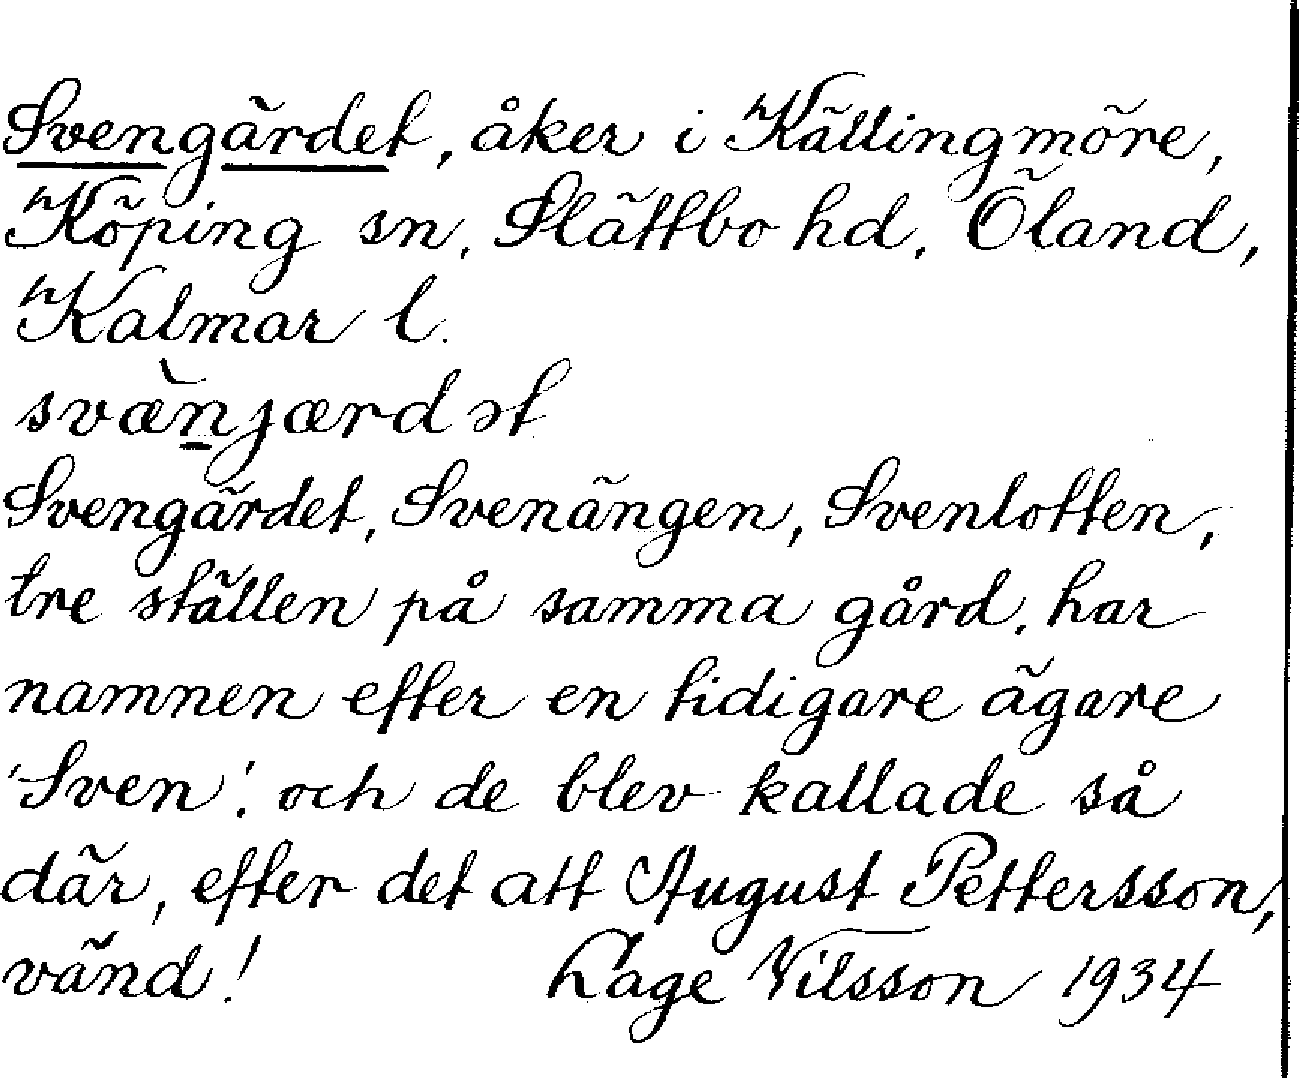 Svengärdet, åker i Källingmöre,
Köping sn, Slättbo hd, Öland,
Kalmar l.
svæ̀njærdət
Svengärdet, Svenängen, Svenlotten,
tre ställen på samma gård, har
namnen efter en tidigare ägare
'Sven', och de blev kallade så
där, efter det att August Pettersson,
vänd! Lage Nilsson 1934